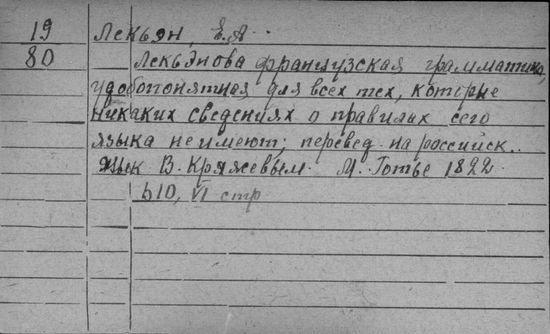 19 Лекьэн, Е.А.
80 Лекьэнова французская грамматика,
удобопонятная для всех тех, которые
никаких сведениях о правилах сего
языка не имеют; перевед. на российск.
язык В. Кряжевым. М. Готье 1822
510, VI стр